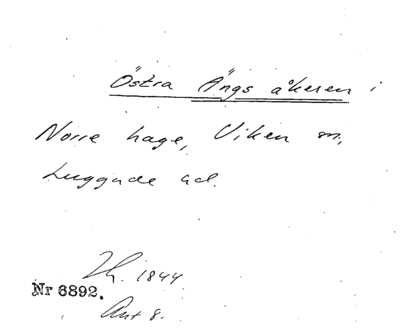 Östra Ängs åkeren i
Norre hage, Viken sn,
Luggude hd.
Th. 1844
Nr 6892.
Akt 8.